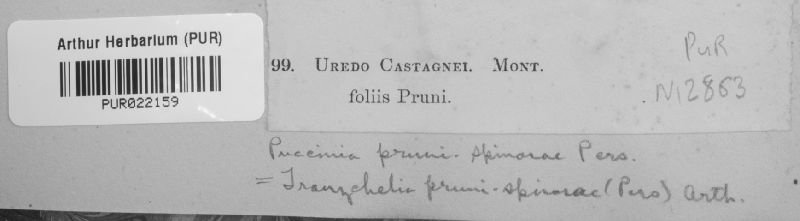 Arthur Herbarium (PUR)
PUR022159
99. UREDO CASTAGNEI. MONT.
foliis Pruni.
PUR
N12863
Puccinia pruni-spinosae Pers.
= Tranzchelia pruni-spinosae (Pers) Arth.